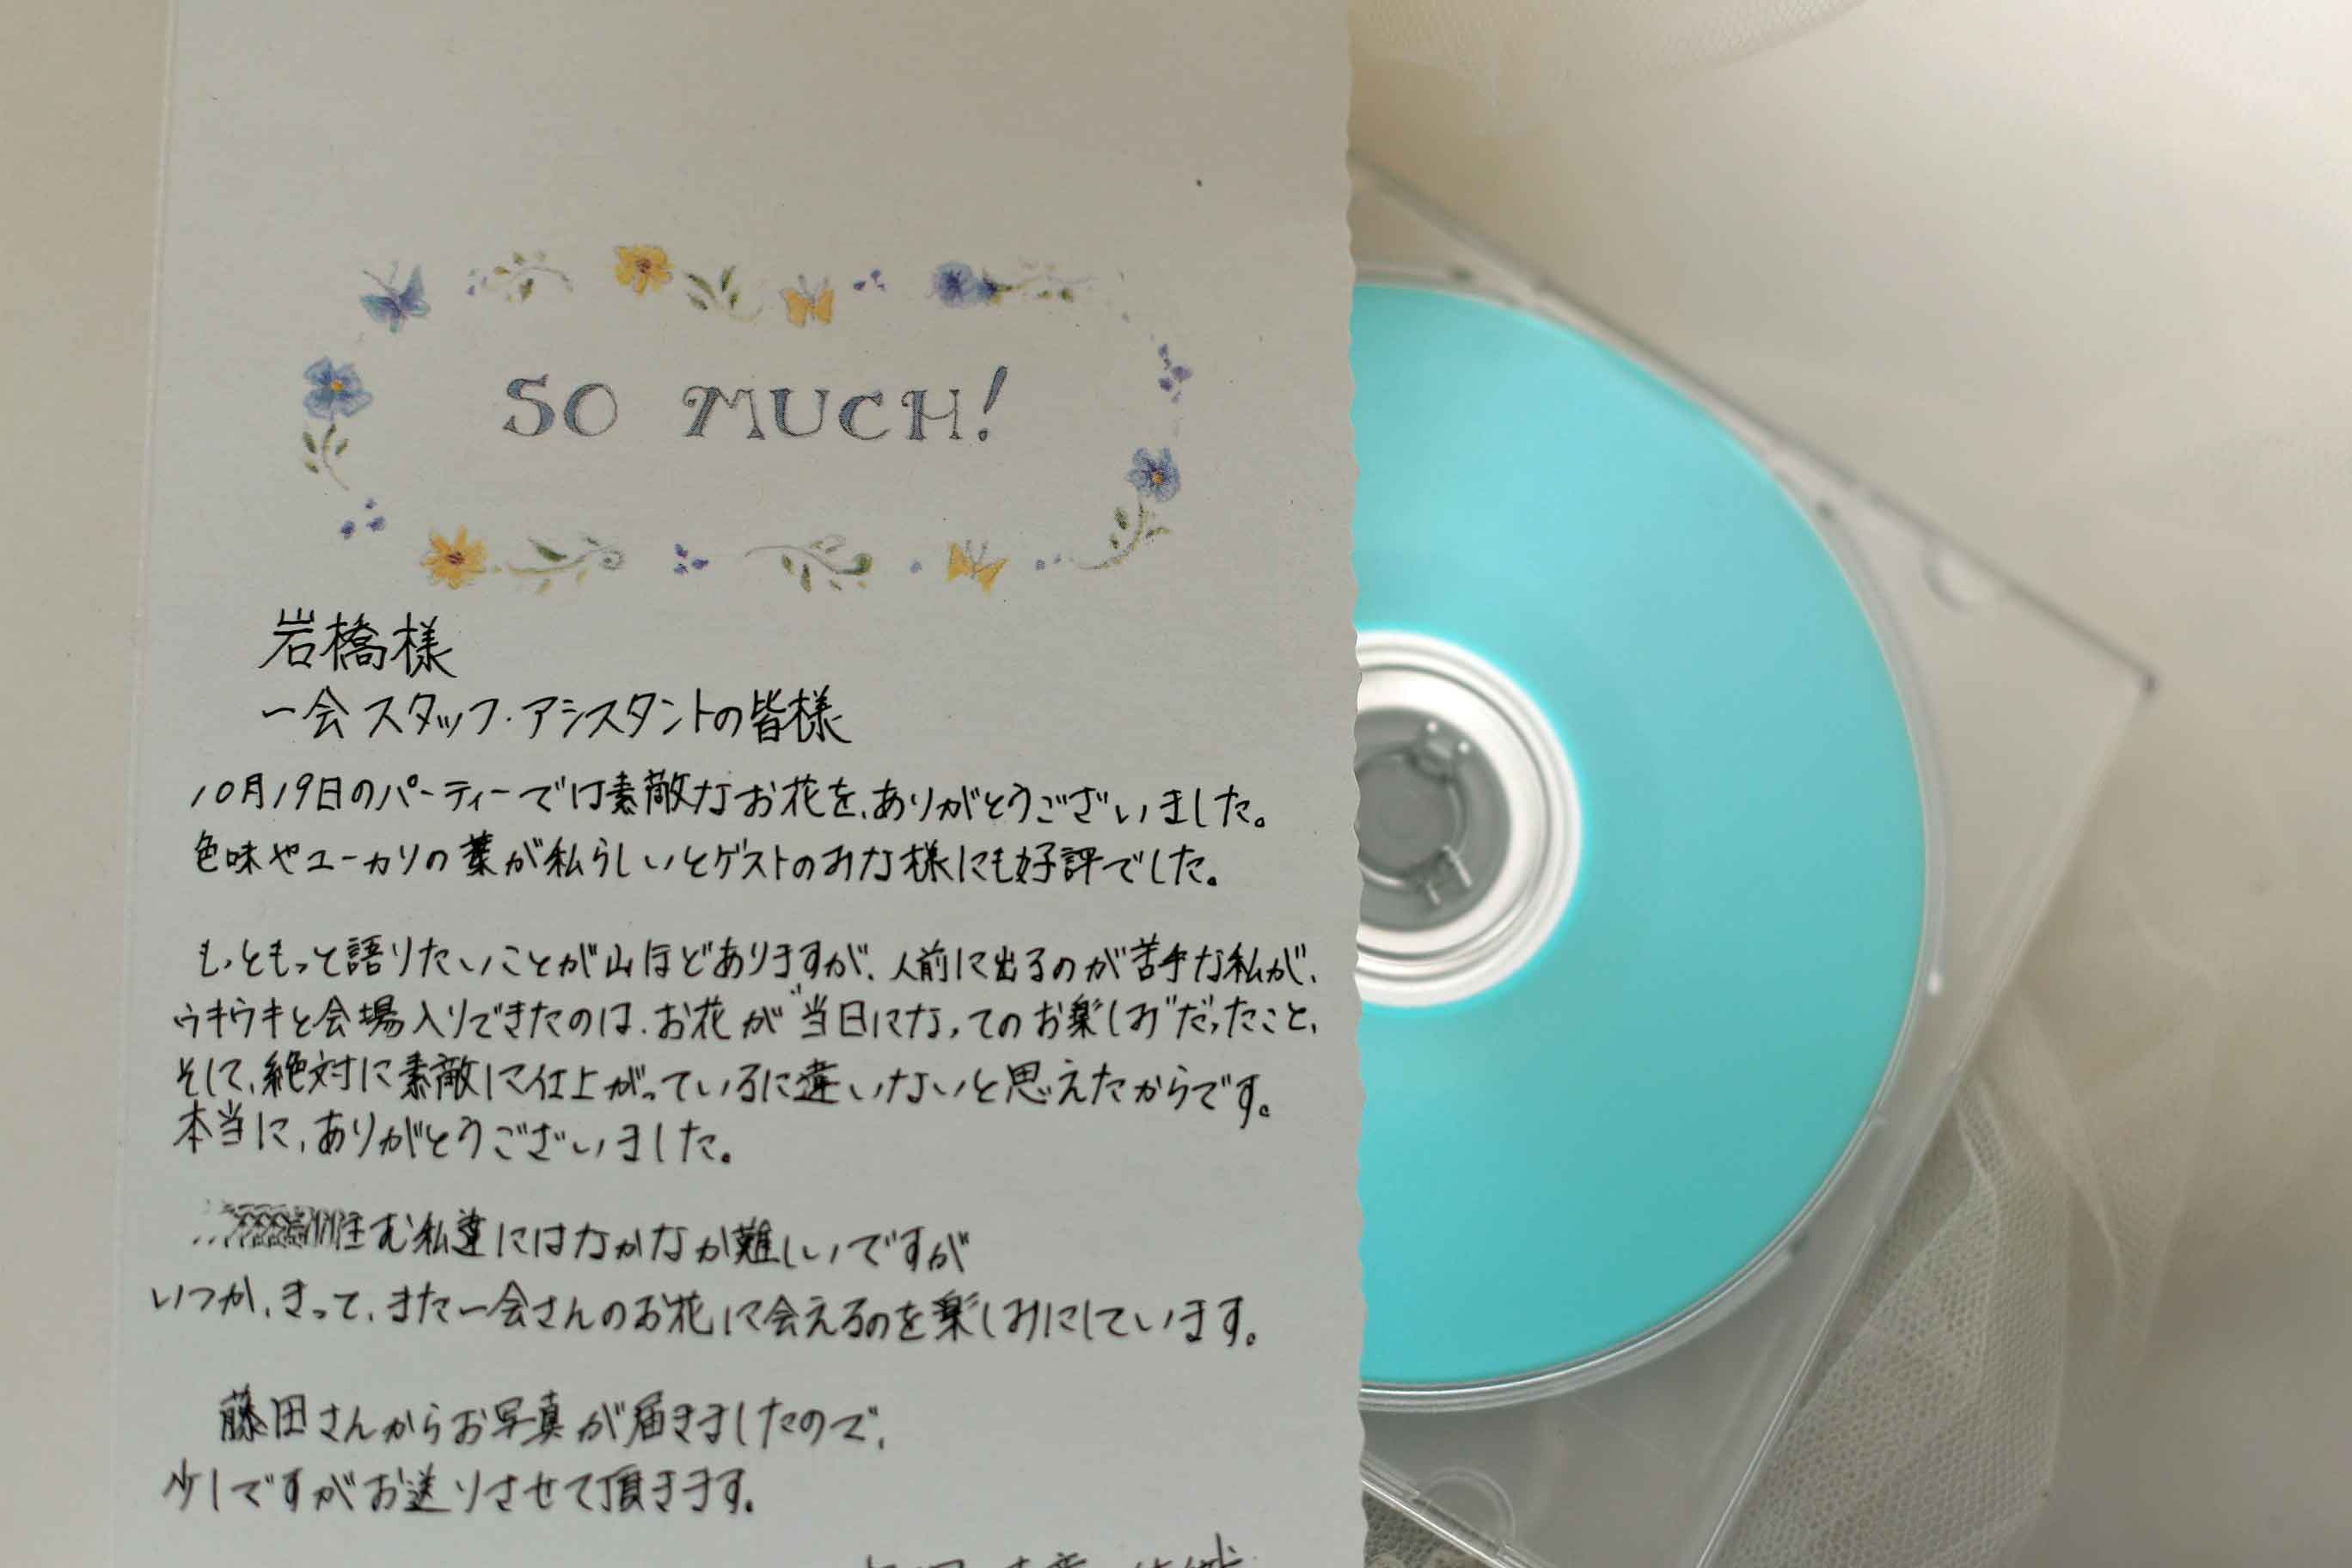 SO MUCH!
岩橋様
一会スタッフ・アシスタントの皆様
10月19日のパーティーでは素敵なお花を、ありがとうございました。
色味やユーカリの葉が私らしいとゲストのみな様にも好評でした。
もっともっと語りたいことが山ほどありますが、人前に出るのが苦手な私が、
ウキウキと会場入りできたのは、お花が“当日になってのお楽しみ”だったこと、
そして、絶対に素敵に仕上がっているに違いないと思えたからです。
本当に、ありがとうございました。
住む私達にはなかなか難しいですが
いつか、きっと、また一会さんのお花に会えるのを楽しみにしています。
藤田さんからお写真が届きましたので、
少しですがお送りさせて頂きます。